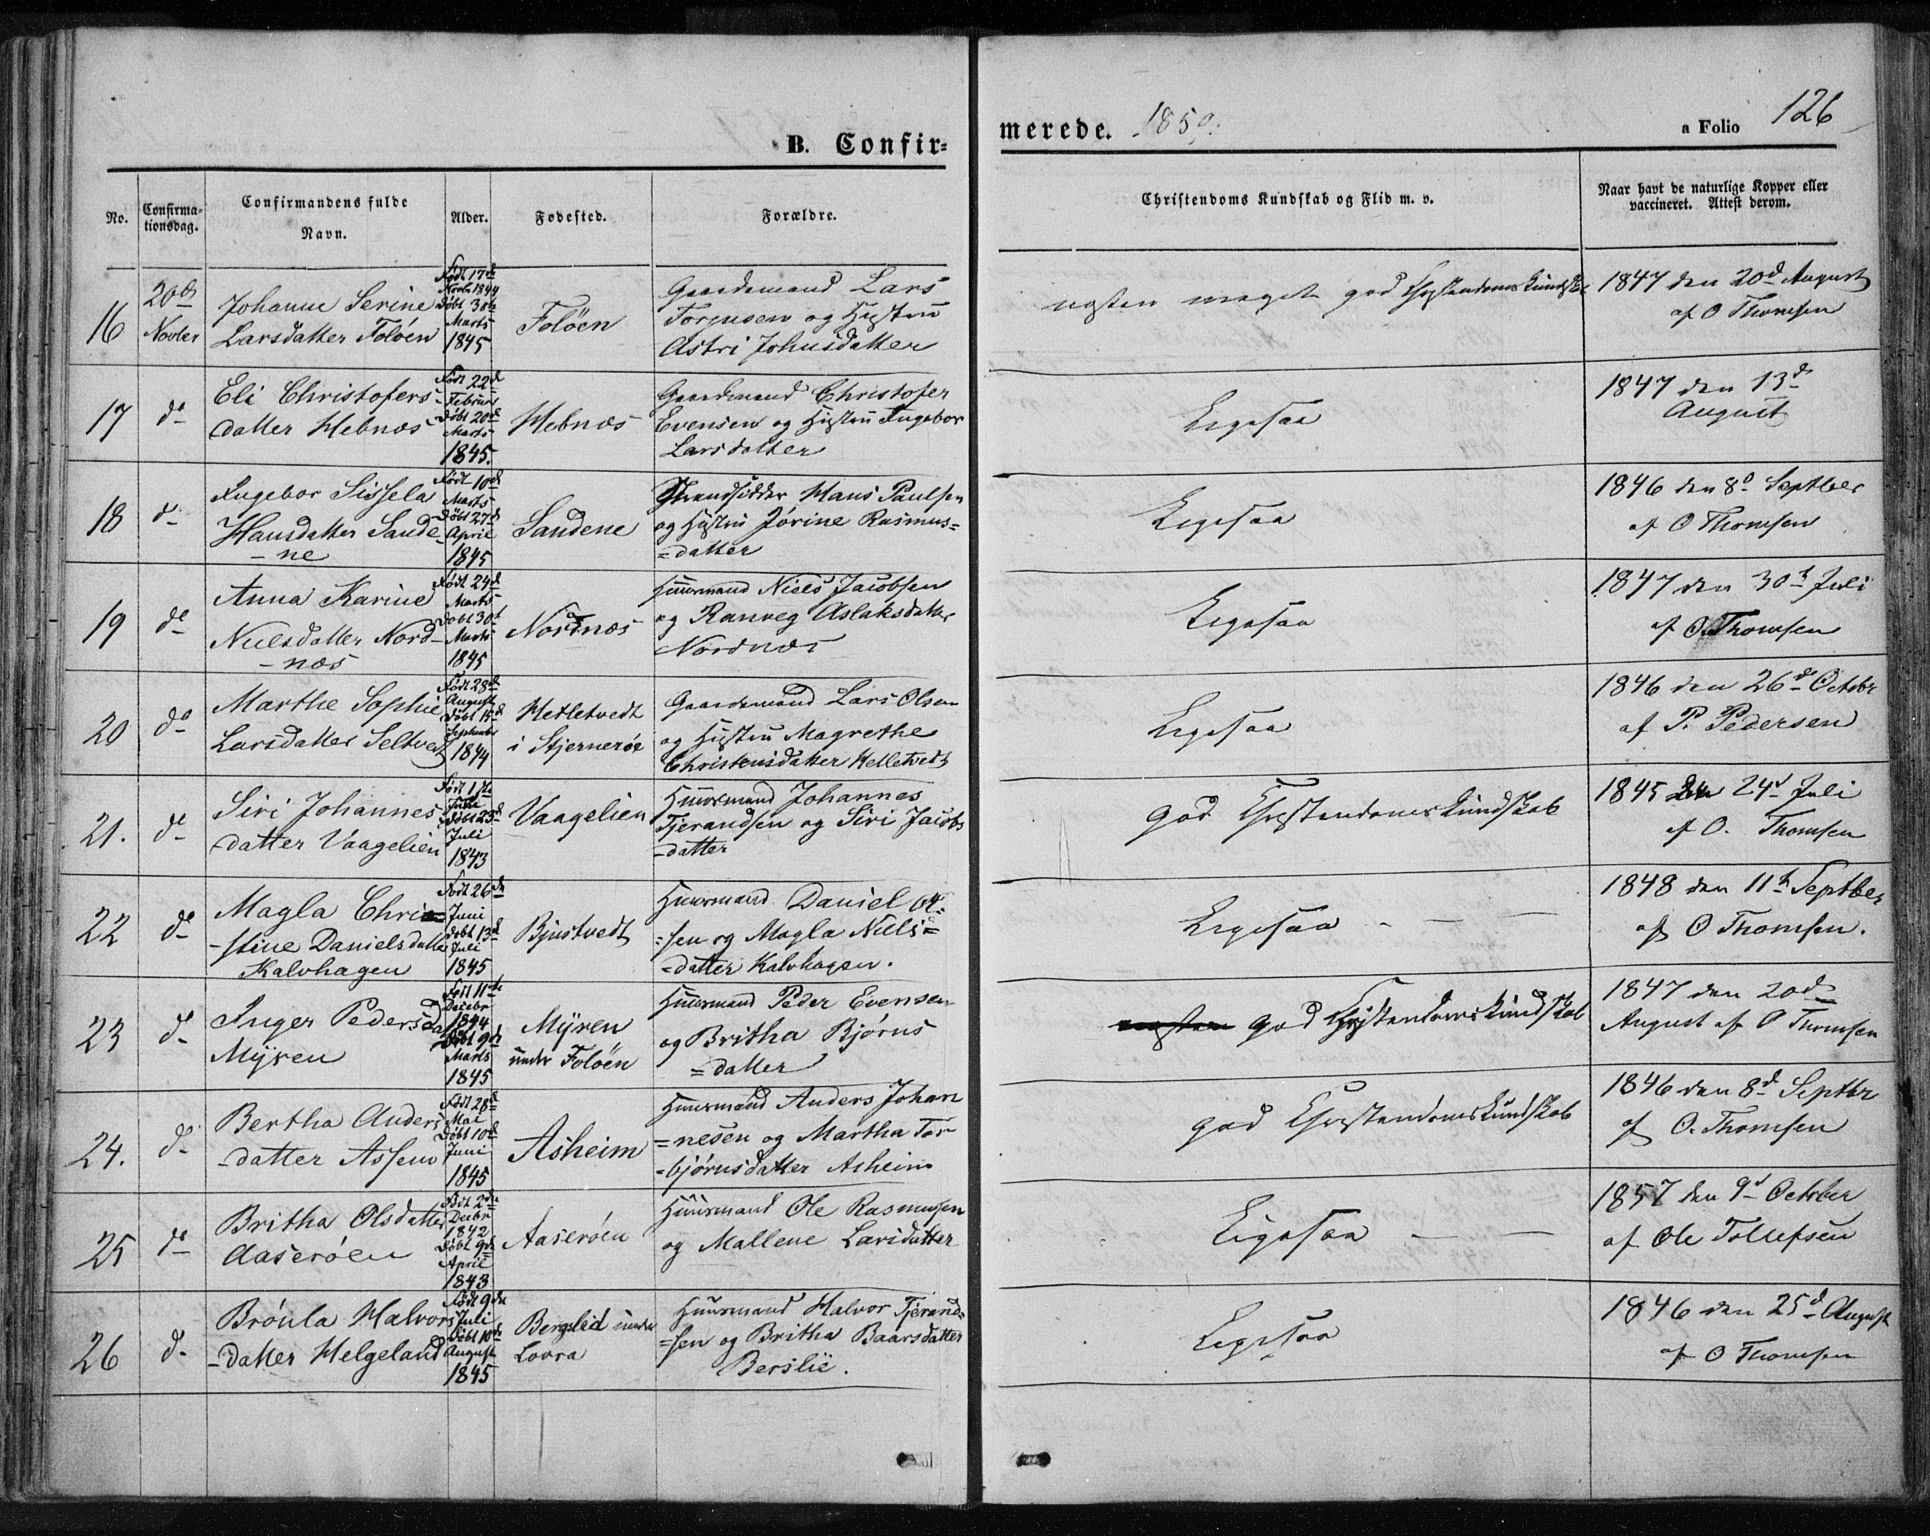 B. Confir-
merede. 1859.
a Folio 126
No.
Confirma-
tionsdag.
Confirmandens fulde
Navn.
Alder.
Fødested.
Forældre.
Christendoms Kundskab og Flid m. v.
Naar havt de naturlige Kopper eller
vaccineret. Attest derom.
16
20de
Novber
Johanne Serine
Larsdatter Foløen
Født 17de
Novbr 1844
Døbt 30te
Marts
1845
Foløen
Gaardmand Lars
og Hustru
Astri Johnsdatter
næsten meget god Christendomskundskab
1847 den 20d August
af O Thomsen
17
do
Eli Christofers-
datter Hebnæs
Født 22d
Februar
Døbt 20d
Marts
1845.
Hebnæs
Gaardmand Christofer
Evensen og Hustru Ingebor
Larsdatter
Ligesaa
1847 den 13d
August
18
do
Ingebor Sissela
Hansdatter Sande
-ne
Født 10d
Marts
Døbt 27d
April
1845
Sandene
Strandsidder Hans Paulsen
og Hustru Jørine Rasmus=
=datter
Ligesaa
1846 den 8d Septber
af O Thomsen
19
do
Anna Karine
Nielsdatter Nord-
-næs
Født 24d
Marts
Døbt 30t
Marts
1845
Nordnæs
Huusmand Niels Jacobsen
og Ranveg Aslaksdatter
Nordnæs
Ligesaa
1847 den 30te Juli
af O. Thomsen
20
do
Marthe Sophie
Larsdatter Seltvedt
Født 28d
August
Døbt 15d
September
1844
Hetletvedt
i Stjernerøe
Gaardmand Lars Olsen
og Hustru Magrethe
Christensdatter Helletvedt
Ligesaa
1846 den 26de Octobr
af P. Pedersen
21.
do
Siri Johannes
datter Vaagelien
Født 1ste
Juni
Døbt 23d
Juli
1843
Vaagelien
Huusmand Johannes
Tjerandsen og Siri Jacobs
-datter
God Christendomskundskab
1845 den 24d Juli
af O. Thomsen
22
do
Magla Chri=
-stine Danielsdatter
Kalvhagen
Født 26de
Juni
Døbt 13d
Juli
1845
Bjustvedt
Huusmand Daniel Ol=
=sen og Magla Niels=
=datter Kalvhagen.
Ligesaa - - -
1848 den 11te Septber
af O Thomsen.
23
do
Inger Pedersda
Myren
Født 11te
Decebr
1844
Døbt 9de
Marts
1845
Myren
under Foløen
Huusmand Peder Evensen
og Britha Bjørns
=datter
næsten God Christendomskundskab
1847 den 20de
August af O Thomsen
24.
do
Bertha Anders
-datter Assem
Født 28de
Mai
Døbt 10d
Juni
1845
Asheim
Huusmand Anders Johan
=nesen og Martha Tor
=bjørnsdatter Asheim
god Christendomskundskab
1846 den 8d Septbr
af O. Thomsen
25
do
Britha Olsdatter
Aaserøen
Født 2den
Decbr
1842
Døbt 9de
April
1843
Aaserøen
Huusmand Ole Rasmusen
og Mallene Larsdatter
Ligesaa - -
1857 den 9d October
af Ole Tollefsen
26
do
Brønla Halvors
-datter Helgeland
Født 9de
Juli
Døbt 10de
August
1845
Bergslid under
Lovra
Huusmand Halvor Tjerand=
=sen og Britha Baarsdatter
Berslie.
Ligesaa
1846 den 25d August
af O Thomsen